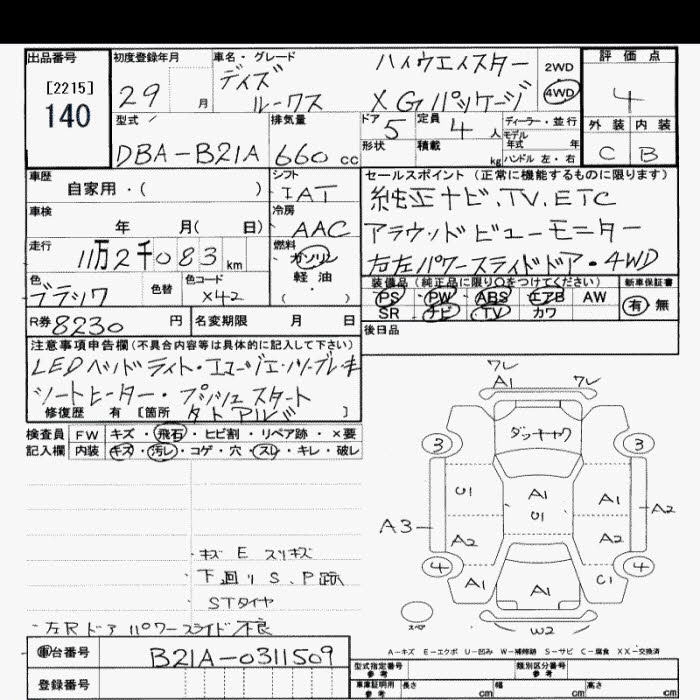 出品番号
[2215]
140
初度登録年月
29 月
車名・グレード
ハイウエイスター
デイズ
ルークス XGパッケージ
2WD
4WD
評価点
4
外装 内装
C B
型式
DBA-B21A
排気量
660 cc
ドア 5
定員 4 人
形状
積載 kg
ディーラー・並行
モデル年式 年
ハンドル 左・右
車歴
自家用・( )
シフト
IAT
車検
年 月( 日)
冷房
AAC
走行
11万2千083 km
燃料
ガソリン
軽油
( )
色
ブラック
色替
色コード
X42
R券 8230 円
名変期限 月 日
セールスポイント(正常に機能するものに限ります)
純正ナビ.TV.ETC
アラウンドビューモニター
右左パワースライドドア・4WD
装備品(純正品に限り○をつけてください)
PS PW ABS エアB AW
SR ナビ TV カワ
新車保証書
有 無
後日品
注意事項申告欄(不具合内容等は具体的に記入して下さい)
LEDヘッドライト・エマージェンシーブレーキ
シートヒーター・プッシュスタート
修復歴 有 [箇所 ]
検査員 FW キズ・飛石・ヒビ割・リペア跡・×要
記入欄 内装 キズ・汚レ・コゲ・穴・スレ・キレ・破レ
・キズ E スリキズ
・下廻り S、P跡
・STタイヤ
・左Rドア パワースライド不良
ワレ
A1
ワレ
ダッキャク
3
3
U1
A1
U1
A1
A3
A2
A2
A2
4
4
A1
A1
C1
スペア
W2
A-キズ E-エクボ U-凹み W-補修跡 S-サビ C-腐食 XX-交換済
車台番号
B21A-0311509
登録番号
型式指定番号
参考
類別区分番号
参考
車庫証明用
参考
長さ cm
幅 cm
高さ cm